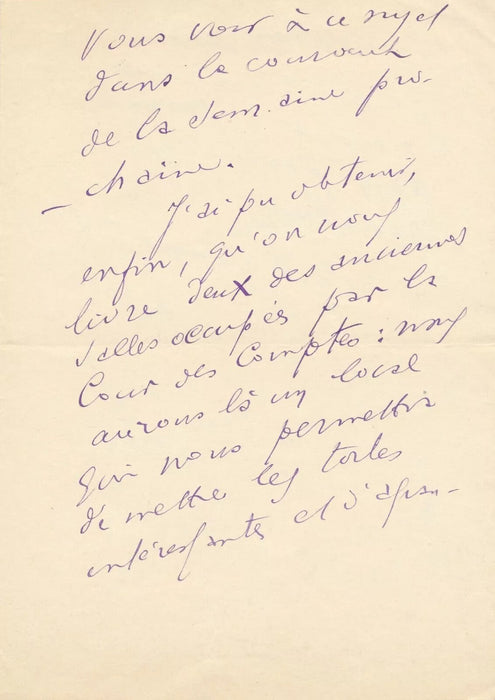 vous voir à ce sujet
dans le courant
de la semaine pro-
- chaine.
J'ai pu obtenir,
enfin, qu'on nous
livre deux des anciennes
salles occupés par la
Cour des Comptes : nous
aurons là un local
qui nous permettra
de mettre les toiles
intéressantes et d'agran-